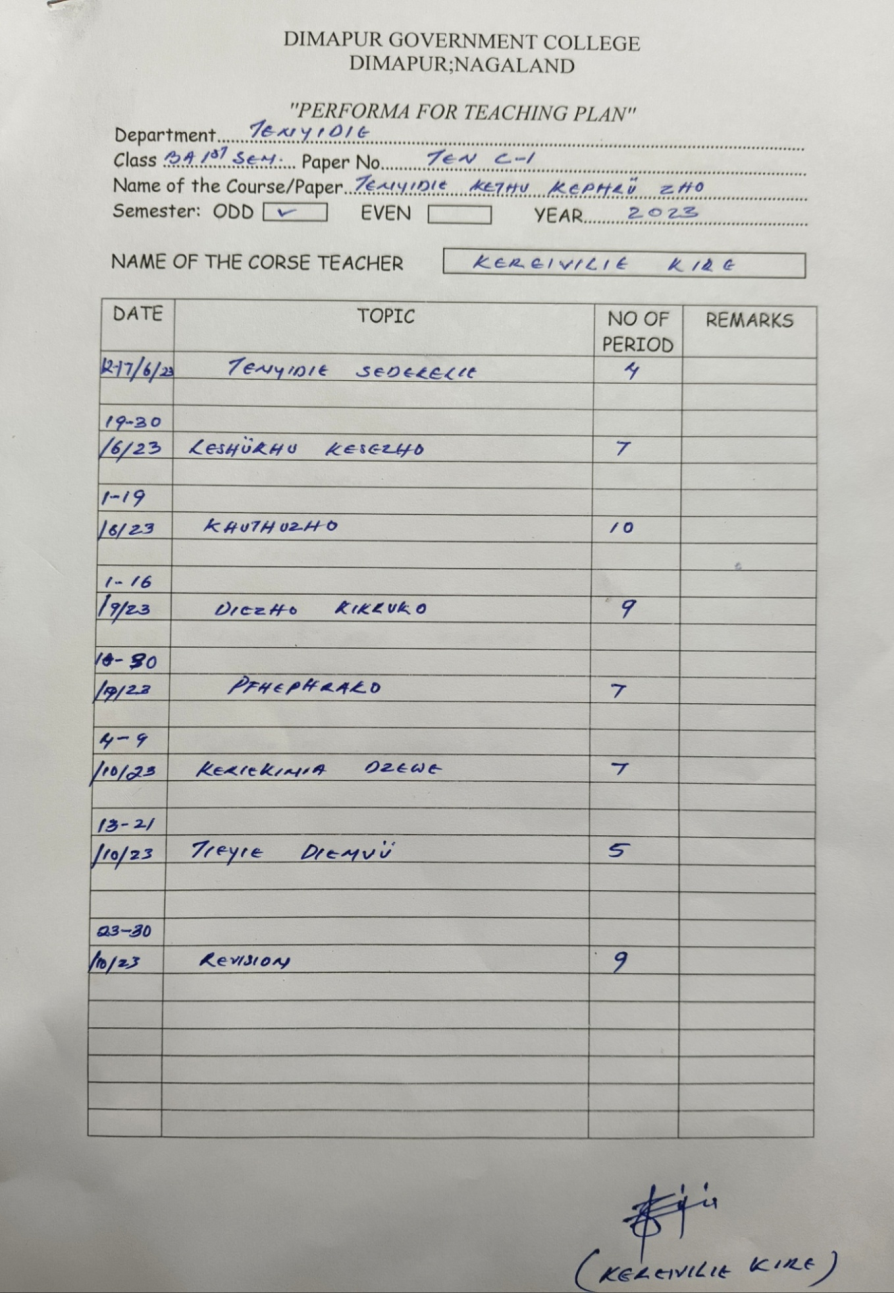 DIMAPUR GOVERNMENT COLLEGE
DIMAPUR;NAGALAND
"PERFORMA FOR TEACHING PLAN"
Department...... TENYIDIE
Class BA 1ST SEM: Paper No. TEN C-1
Name of the Course/Paper TENYIDIE KETHU KEPHRÜ ZHO
Semester: ODD ✓ EVEN YEAR 2023
NAME OF THE CORSE TEACHER KEREIVILIE KIRE
DATE TOPIC NO OF PERIOD REMARKS
12-17/6/23 TENYIDIE SEDERELIE 4
19-30
/6/23 LESHÜRHU KESEZHO 7
1-19
/8/23 KHUTHUZHO 10
1-16
/9/23 DIEZHO KIKRUKO 9
18-30
/9/23 PFHEPHRAKO 7
4-9
/10/23 KERIEKIMIA DZEWE 7
13-21
/10/23 TIEYIE DIEMVÜ 5
23-30
/10/23 REVISION 9
(KEREIVILIE KIRE)